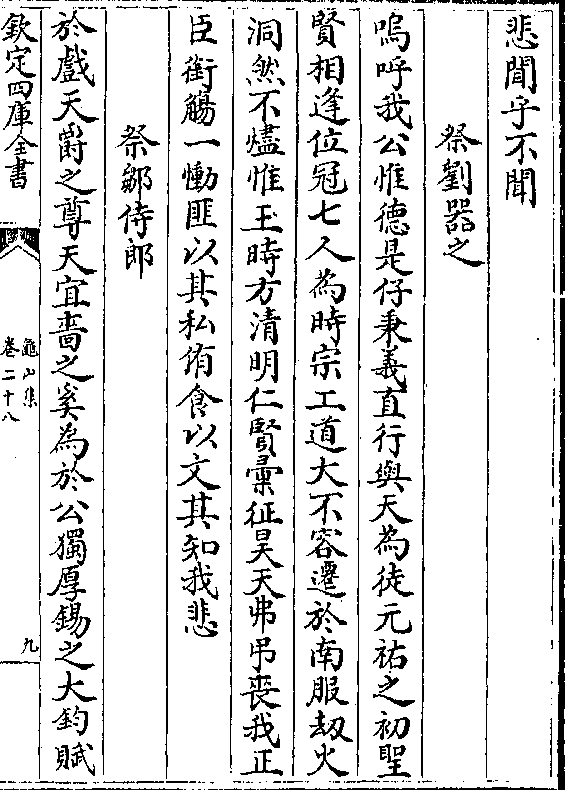 悲聞乎不聞
祭劉器之
嗚呼我公惟德是仔秉義直行與天為徒元祐之初聖
賢相逢位冠七人為時宗工道大不容遷於南服刼火
洞然不燼惟玉時方清明仁賢彚征昊天弗弔喪我正
臣銜觴一慟匪以其私侑食以文其知我悲
祭鄒侍郎
於戲天爵之尊天宜嗇之奚為於公獨厚錫之大鈞賦
欽定四庫全書
龜山集
卷二十八
九